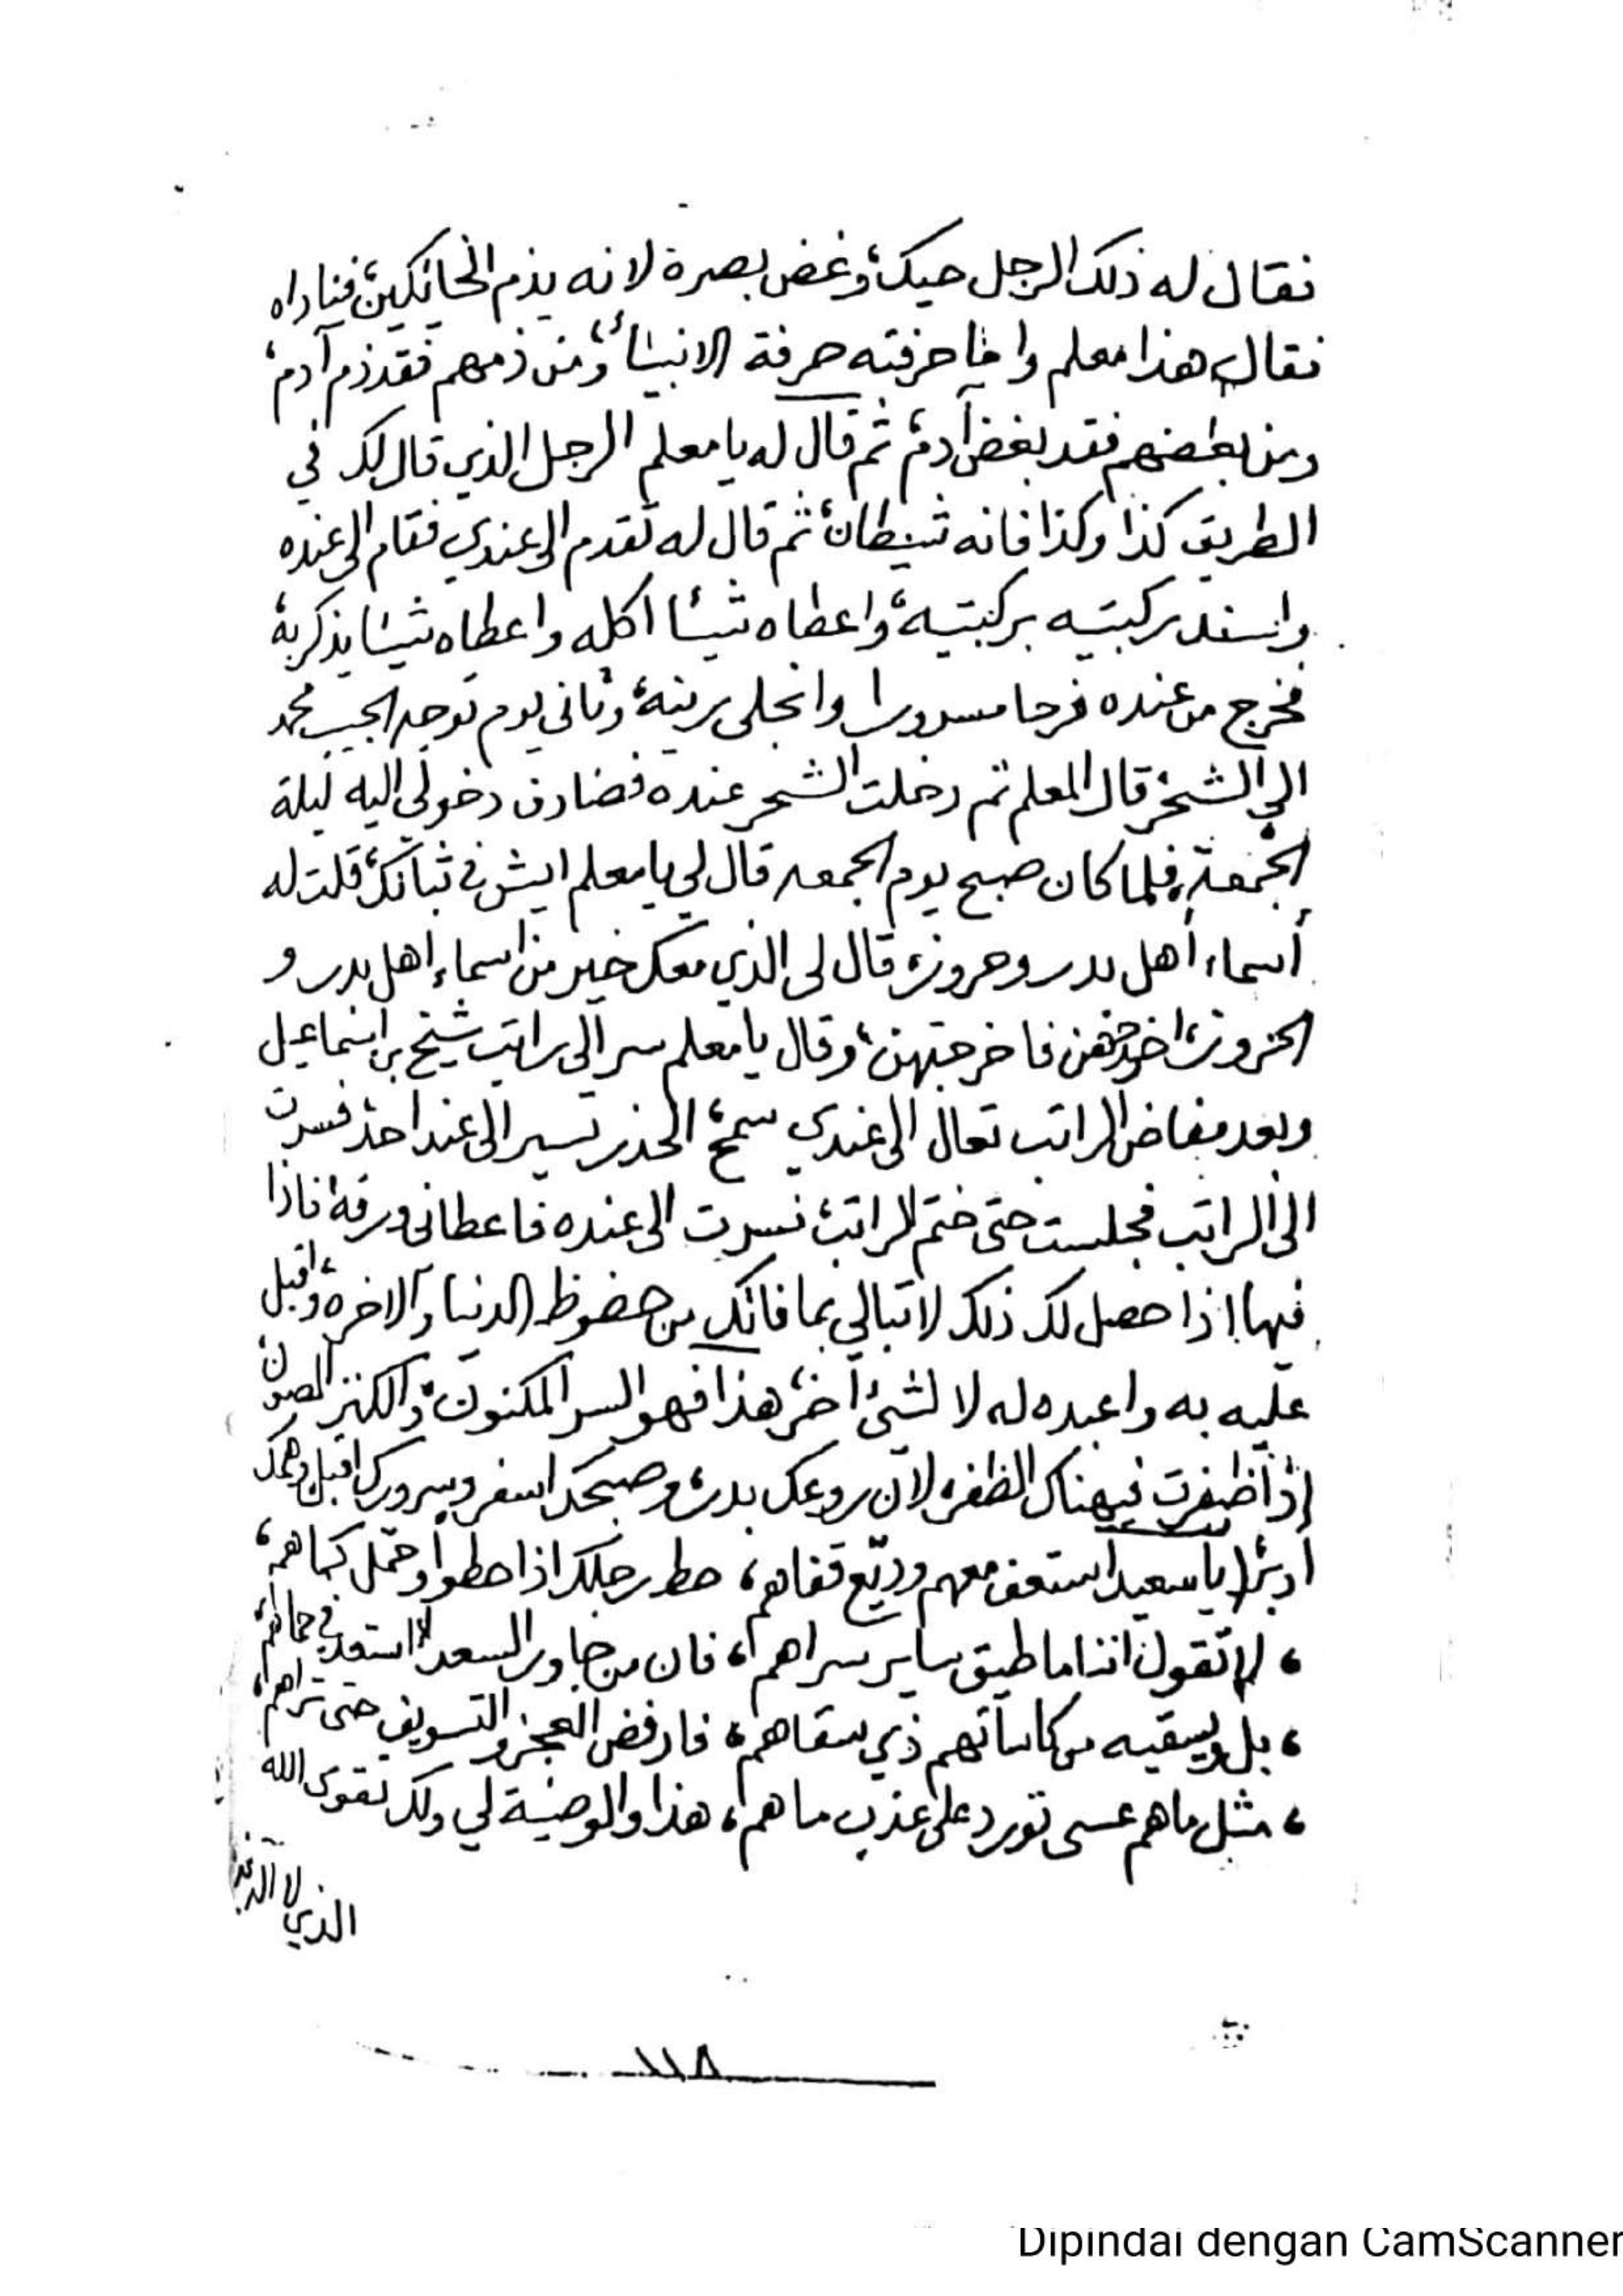 فقال له ذلك الرجل حيك، وغض بصره لانه يذم الحائكين، فناداه
فقال هذا معلم وا حرفته حرفة الانبياء، ومن ذمهم فقد ذم آدم،
ومن بغضهم فقد بغض آدم، ثم قال له يا معلم الرجل الذي قال لك في
الطريق كذا وكذا فانه شيطان، ثم قال له تقدم الى عندي فقام الى عنده
واسند ركبتيه بركبتيه، واعطاه شيئا اكله واعطاه شيئا يذكر به،
فخرج من عنده فرحا مسرورا وانجلى رينه، وثاني يوم توجه الحبيب محمد
الى الشحر قال المعلم ثم دخلت الشحر عنده فصادف دخولي اليه ليلة
الجمعة، فلما كان صبح يوم الجمعه قال لي يا معلم ايش في ثبانك، قلت له
أسماء أهل بدر وحروز، قال لي الذي معك خير من اسماء اهل بدر و
الحروز، فاخرجتهن، وقال يا معلم سر الى راتب شيخ بن اسماعيل
وبعد مفاض الراتب تعال الى عندي سمح، الحذر تسير الى عند احد، فسرت
الى الراتب فجلست حتى ختم الراتب، فسرت الى عنده فاعطاني ورقة، فاذا
فيها اذا حصل لك ذلك لا تبالي بما فاتك من حضوظ الدنيا والاخره، واقبل
عليه به واعبده له لا لشيء آخر، هذا فهو السر المكنون، والكنز المصون
إذا ظفرت فيهناك الظفر، لان روعك بدر، وصبحك اسفر وسرورك اقبل وهمك
أدبر، يا سعيد استعف معهم وربّع قفاهم، حط رحلك اذا حطوا وحمّل كماهم،
، لا تقول انذا ما طيق ساير سراهم، فان من جاور السعد استعد في حماهم،
، بل ويسقيه من كاساتهم ذي سقاهم، فارفض العجز والتسويف حتى تراهم،
، مثل ماهم عسى تورد على عذب ماهم، هذا والوصية لي ولك تقوى الله
الذي لا
١١٨
Dipindai dengan CamScanner